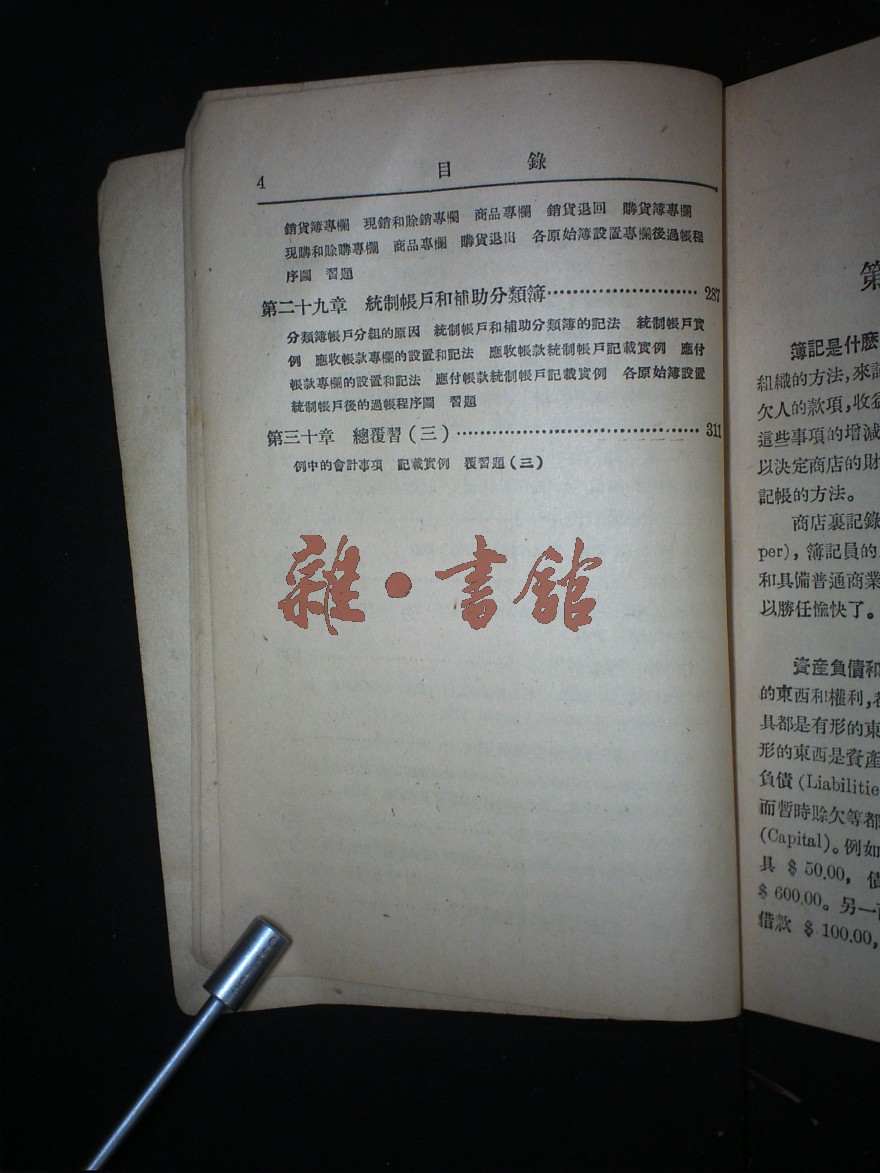 4 目 錄
銷貨簿專欄 現銷和賒銷專欄 商品專欄 銷貨退回 購貨簿專欄
現購和賒購專欄 商品專欄 購貨退出 各原始簿設置專欄後過帳程
序圖 習題
第二十九章 統制帳戶和補助分類簿························ 287
分類簿帳戶分組的原因 統制帳戶和補助分類簿的記法 統制帳戶實
例 應收帳款專欄的設置和記法 應收帳款統制帳戶記載實例 應付
帳款專欄的設置和記法 應付帳款統制帳戶記載實例 各原始簿設置
統制帳戶後的過帳程序圖 習題
第三十章 總覆習(三)·······································311
例中的會計事項 記載實例 覆習題(三)
雜·書館
第
簿記是什麽
組織的方法,來記
欠人的款項,收益
這些事項的增減
以決定商店的財
記帳的方法。
商店裏記錄
per),簿記員的
和具備普通商業
以勝任愉快了。
資產負債和
的東西和權利,都
具都是有形的東
形的東西是資產
負債(Liabilitie
而暫時賒欠等都
(Capital)。例如
具 $ 50.00, 債
$ 600.00。另一
借款 $ 100.00,